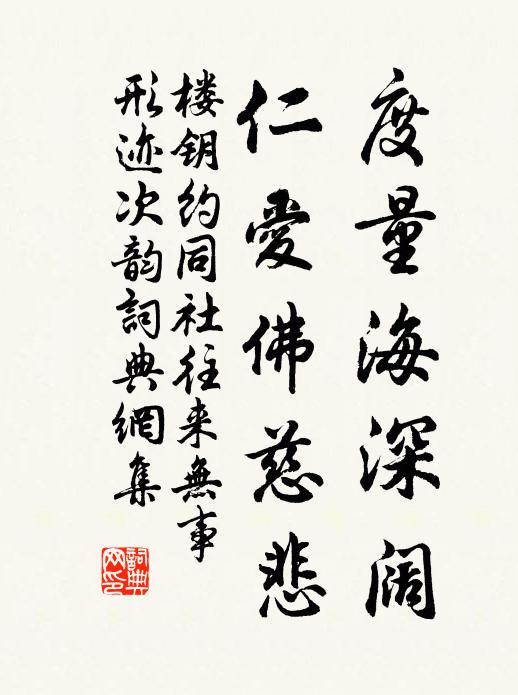 度量海深阔
仁愛佛慈悲
楼钥约同社往来無事
形迹次韵詞典網集
詞典网印